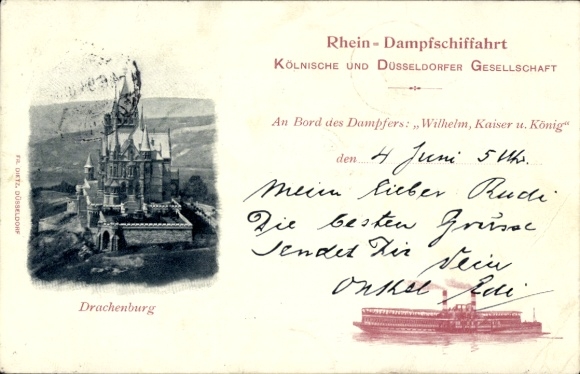 Rhein = Dampfschiffahrt
KÖLNISCHE UND DÜSSELDORFER GESELLSCHAFT
An Bord des Dampfers: „Wilhelm, Kaiser u. König“
den 4 Juni 5 Uhr.
Mein lieber Rudi
Die besten Grüsse
sendet Dir Dein
Onkel Edi
Drachenburg
FR. DIETZ, DÜSSELDORF